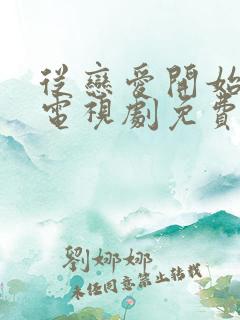 從戀愛開始
電視劇免費
劉娜娜
未經同意禁止轉載